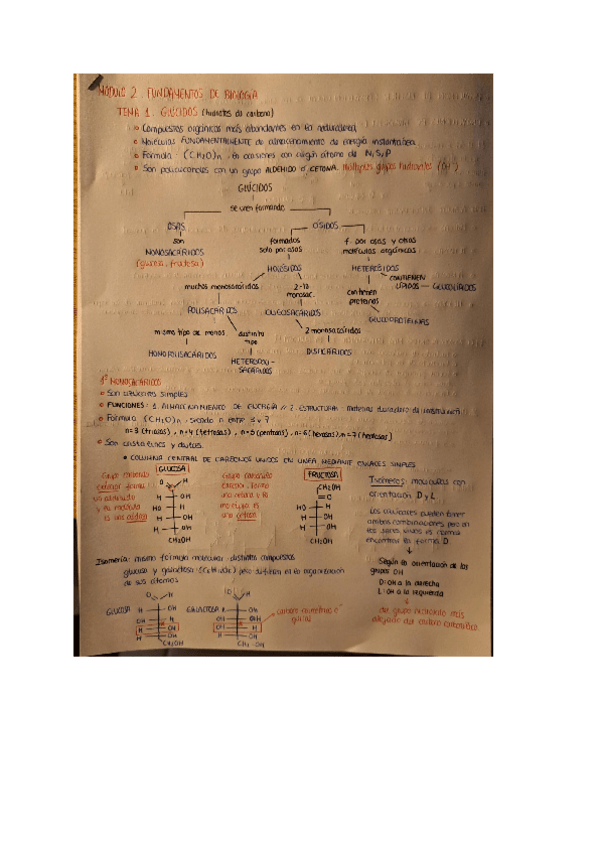 MÓDULO 2. FUNDAMENTOS DE BIOLOGIA
TEMA 1. GLÚCIDOS (hidratos de carbono)
Compuestos orgánicos más abundantes en la naturaleza
Moléculas FUNDAMENTALMENTE de almacenamiento de energía instantánea.
Fórmula: (CH2O)n, en ocasiones con algún átomo de N, S, P
Son polialcoholes con un grupo ALDEHÍDO O CETONA. Múltiples grupos hidroxilos (OH-)
GLÚCIDOS
se unen formando
OSAS
ÓSIDOS
son
MONOSACÁRIDOS
(glucosa, fructosa)
formados
solo por osas
f. por osas y otras
moléculas orgánicas
HOLÓSIDOS
HETERÓSIDOS
muchos monosacáridos
2-10
monosac.
CONTIENEN
LÍPIDOS
GLUCOLÍPIDOS
contienen
proteínas
POLISACÁRIDOS
OLIGOSACÁRIDOS
GLUCOPROTEÍNAS
mismo tipo de monos
distinto
tipo
2 monosacáridos
HOMOPOLISACÁRIDOS
HETEROPOLI-
SACÁRIDOS
DISACÁRIDOS
1º MONOSACÁRIDOS
Son azúcares simples
FUNCIONES: 1. ALMACENAMIENTO DE ENERGÍA // 2. ESTRUCTURAL:
Fórmula (CH2O)n, siendo n entre 3 y 7
n=3 (triosas), n=4 (tetrosas), n=5 (pentosas), n=6 (hexosas), n=7 (heptosas)
Son cristalinos y dulces.
COLUMNA CENTRAL DE CARBONOS UNIDOS EN LÍNEA MEDIANTE ENLACES SIMPLES
GLUCOSA
FRUCTOSA
Grupo carbonilo
exterior forma
un aldehído
y la molécula
es una aldosa
O H
H OH
HO H
H OH
H OH
CH2OH
Grupo carbonilo
interior, forma
una cetona y la
molécula es
una cetosa
CH2OH
C
HO H
H OH
H OH
CH2OH
Isómeros: moléculas con
orientación D y L
Los azúcares pueden tener
ambas combinaciones pero en
los seres vivos es normal
encontrar la forma D
Según la orientación de los
grupos OH
D: OH a la derecha
L: OH a la izquierda
del grupo hidroxilo más
alejado del carbono carbonílico
Isomería: misma fórmula molecular: distintos compuestos
glucosa y galactosa: (C6H12O6) pero difieren en la organización
de sus átomos
GLUCOSA
GALACTOSA
CH2OH
CH2OH